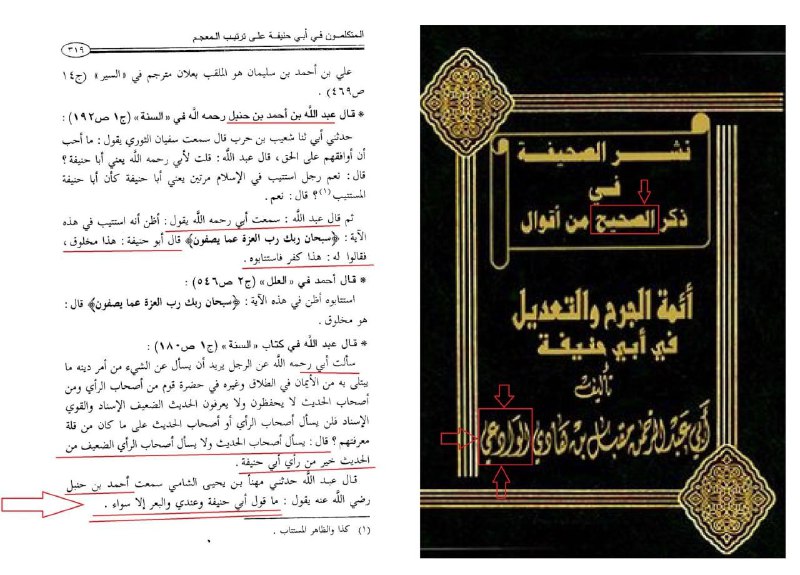 المتكلمون في أبي حنيفة على ترتيب المعجم
٣١٩
علي بن أحمد بن سليمان هو الملقب بعلان مترجم في «السير» (ج١٤
ص٤٦٩) .
* قال عبد اللَّه بن أحمد بن حنبل رحمه اللَّه في «السنة» (ج١ ص١٩٢) :
حدثني أبي لنا شعيب بن حرب قال سمعت سفيان الثوري يقول : ما أحب
أن أوافقهم على الحق ، قال عبد اللَّه : قلت لأبي رحمه اللَّه يعني أبا حنيفة ؟
قال : نعم رجل استتيب في الإسلام مرتين يعني أبا حنيفة كأن أبا حنيفة
المستتيب(١) ؟ قال : نعم .
ثم قال عبد اللَّه : سمعت أبي رحمه اللَّه يقول : أظن أنه استتيب في هذه
الآية : ﴿سبحان ربك رب العزة عما يصفون﴾ قال أبو حنيفة : هذا مخلوق ،
فقالوا له : هذا كفر فاستتابوه .
* قال أحمد في «العلل» (ج٢ ص٥٤٦) :
استتابوه أظن في هذه الآية : ﴿سبحان ربك رب العزة عما يصفون﴾ قال :
هو مخلوق .
* قال عبد اللَّه في كتاب «السنة» (ج١ ص١٨٠) :
سألت أبي رحمه اللَّه عن الرجل يريد أن يسأل عن الشيء من أمر دينه ما
يبتلى به من الأيمان في الطلاق وغيره في حضرة قوم من أصحاب الرأي ومن
أصحاب الحديث لا يحفظون ولا يعرفون الحديث الضعيف الإسناد والقوي
الإسناد فلن يسأل أصحاب الرأي أو أصحاب الحديث على ما كان من قلة
معرفتهم ؟ قال : يسأل أصحاب الحديث ولا يسأل أصحاب الرأي الضعيف من
الحديث خير من رأي أبي حنيفة .
قال عبد اللَّه حدثني مهنأ بن يحيى الشامي سمعت أحمد بن حنبل
رضي اللَّه عنه يقول : ما قول أبي حنيفة وعندي والبعر إلا سواء .
(١) كذا والظاهر المستتاب .
نشر الصحيفة
في
ذكر الصحيح من أقوال
أئمة الجرح والتعديل
في أبي حنيفة
تأليف
أبي عبد الرحمن مقبل بن هادي الوادعي